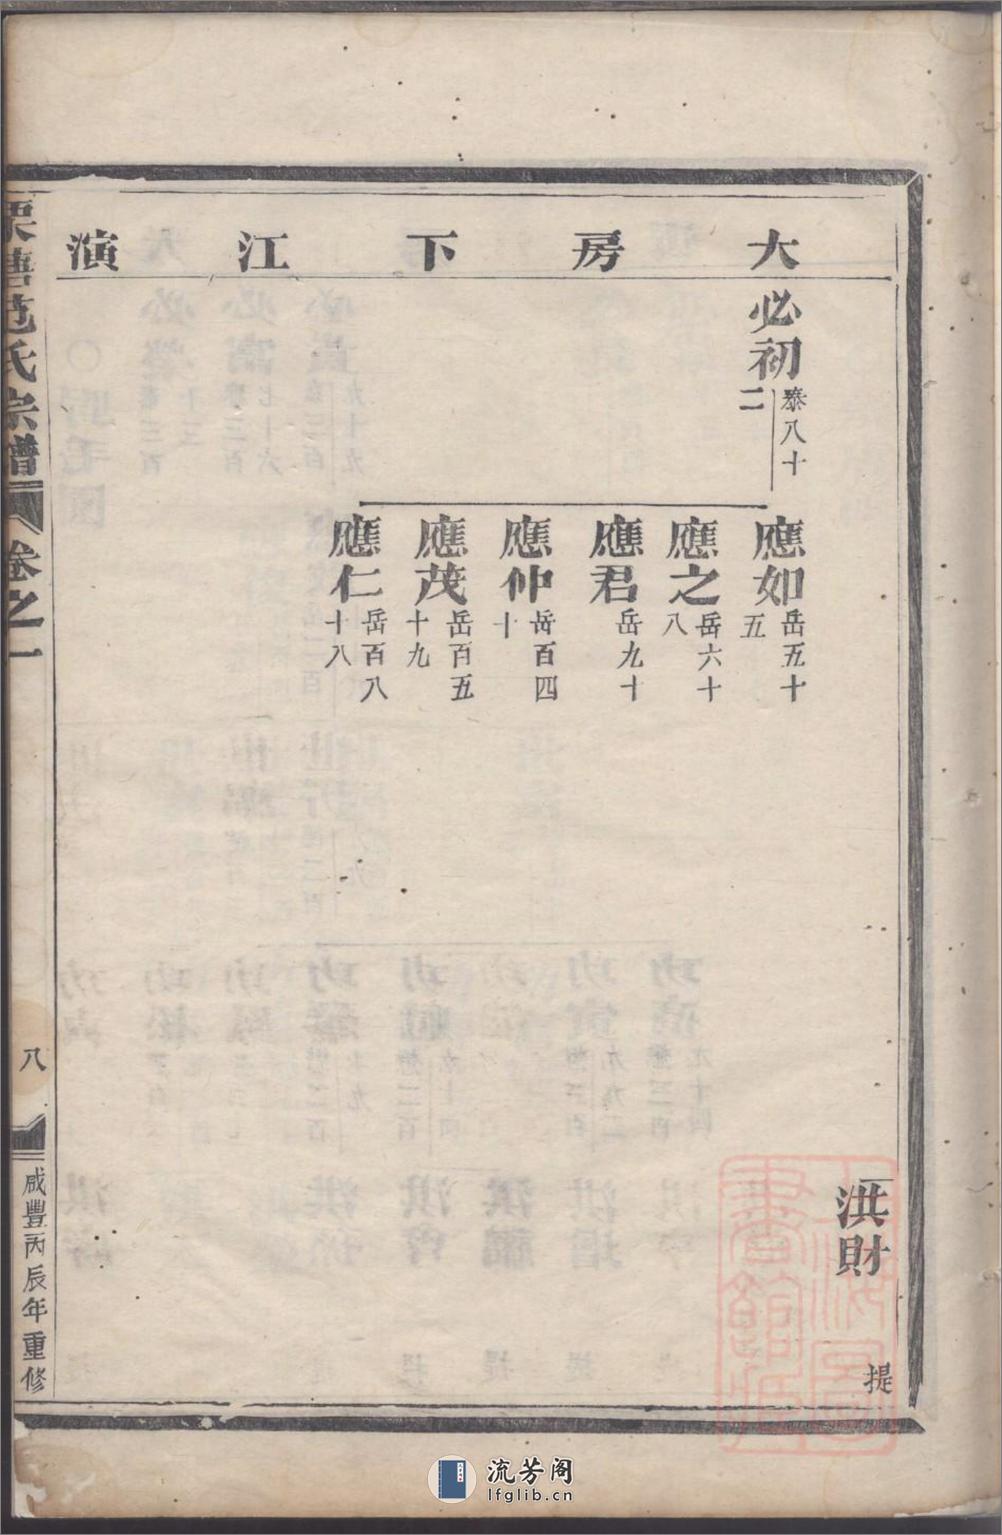 大房下江演
洪財
提
必初
泰八十
二
應如
岳五十
五
應之
岳六十
八
應君
岳九十
應仲
岳百四
十
應茂
岳百五
十九
應仁
岳百八
十八
栗塘范氏宗譜
卷之一
八
咸豐丙辰年重修
上海圖書館藏
流芳阁
lfglib.cn